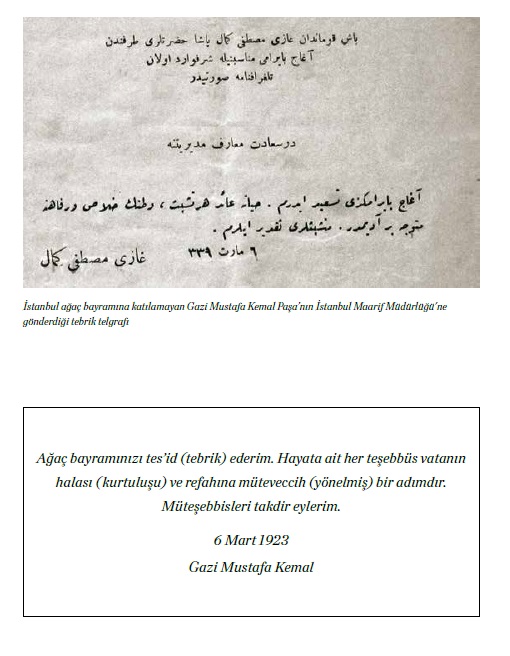 باش قوماندان غازی مصطفی کمال پاشا حضرتلری طرفندن
آغاج بایرامی مناسبتیله شرفوارد اولان
تلغرافنامه صورتیدر
درسعادت معارف مدیریتنه
آغاج بایرامکزی تسعید ایدرم . حیاته عائد هر تشبث ، وطنك خلاص و رفاهنه
متوجه بر آدیمدر . متشبثلری تقدیر ایلرم .
٦ مارت ٣٣٩
غازی مصطفی کمال
İstanbul ağaç bayramına katılamayan Gazi Mustafa Kemal Paşa'nın İstanbul Maarif Müdürlüğü'ne
gönderdiği tebrik telgrafı
Ağaç bayramınızı tes'id (tebrik) ederim. Hayata ait her teşebbüs vatanın
halası (kurtuluşu) ve refahına müteveccih (yönelmiş) bir adımdır.
Müteşebbisleri takdir eylerim.
6 Mart 1923
Gazi Mustafa Kemal